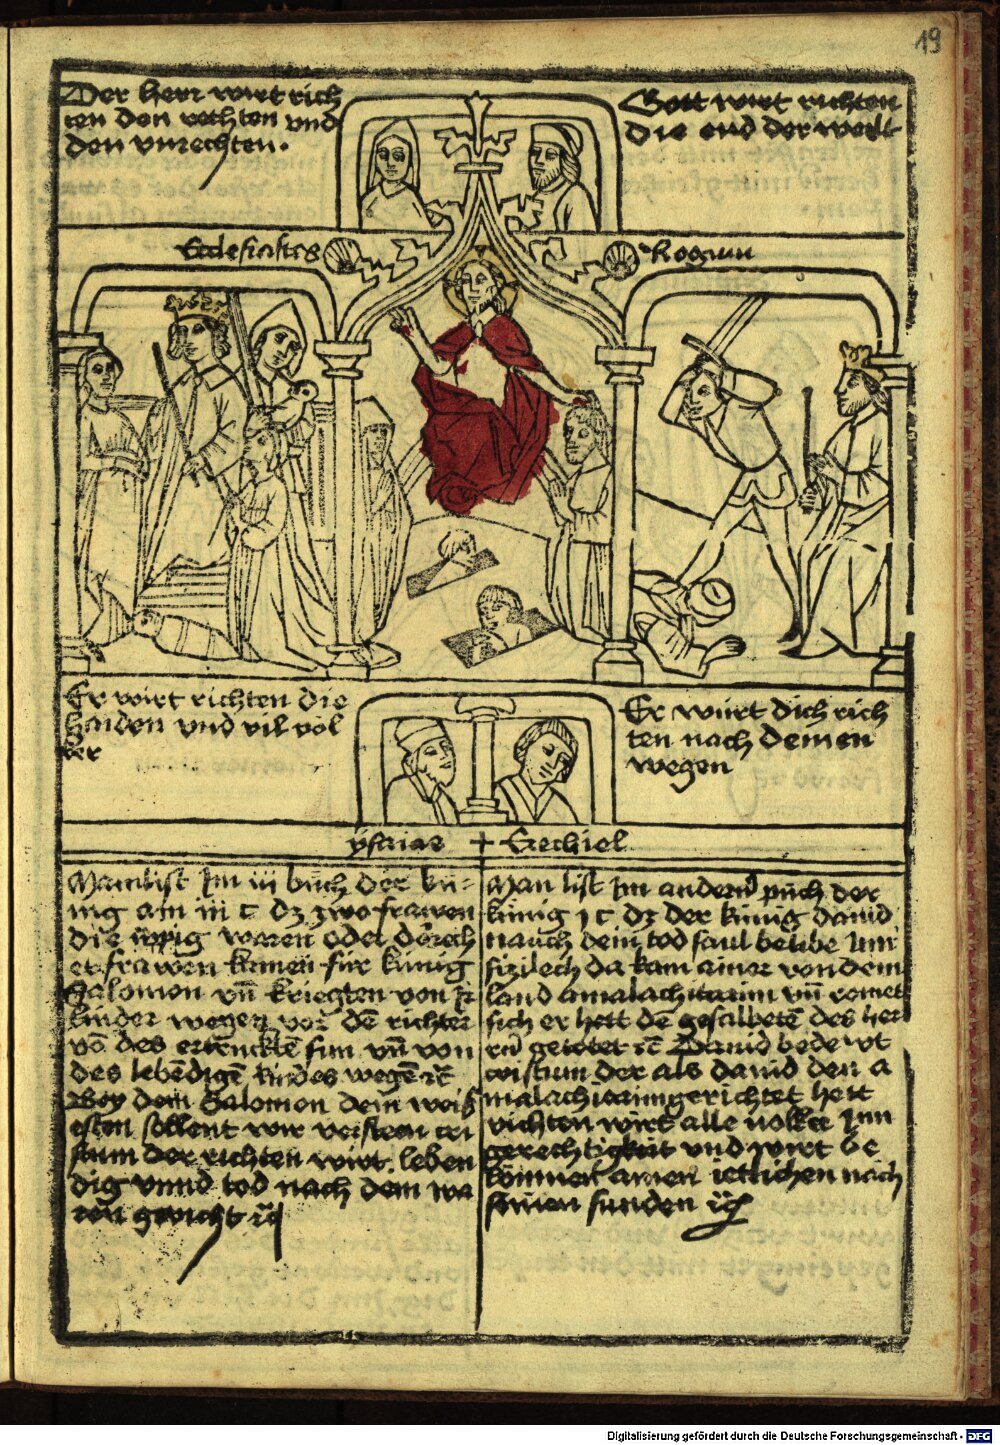 19
Der herr wirt rich
ten den rechten und
den vnrechten.
Gott wirt richten
die end der welt
Ecclesiastes
Regum
Er wirt richten die
haiden vnd vil vol
ker
Er wirt dich rich
ten nach deinen
wegen
ysaias + Ezechiel
Man list Im iii buch der kü-
nig am iii c dz zwo frawen
die üppig waren oder dorech
et frawen kamen für künig
Salomon vn̄ kriegten von ir
kinder wegen vor dē richter
vō des ertruckte sun vn̄ von
des lebēdigē kindes wegē ꝛc̄
Bey dem Salomon dem weiß
esten sollent wir versteen cri
stum der richten wirt leben
dig vnnd tod nach dem wa
ren gericht ꝛc̄
Man list Im andern puch der
künig j c dz der künig dauid
nauch dem tod saul belibe Inn
sizilech da kam ainer von dem
land amalachitarum vn̄ romet
sich er hett dē gesalbetē des her
rn̄ getötet ꝛc̄ Dauid bedeüt
cristum der als dauid den a
malachitarum gerichtet hett
richten wirt alle volker Inn
gerechtigkait vnd wirt be
können ainen ietlichen nach
seinen sunden ꝛc̄
Digitalisierung gefördert durch die Deutsche Forschungsgemeinschaft - DFG